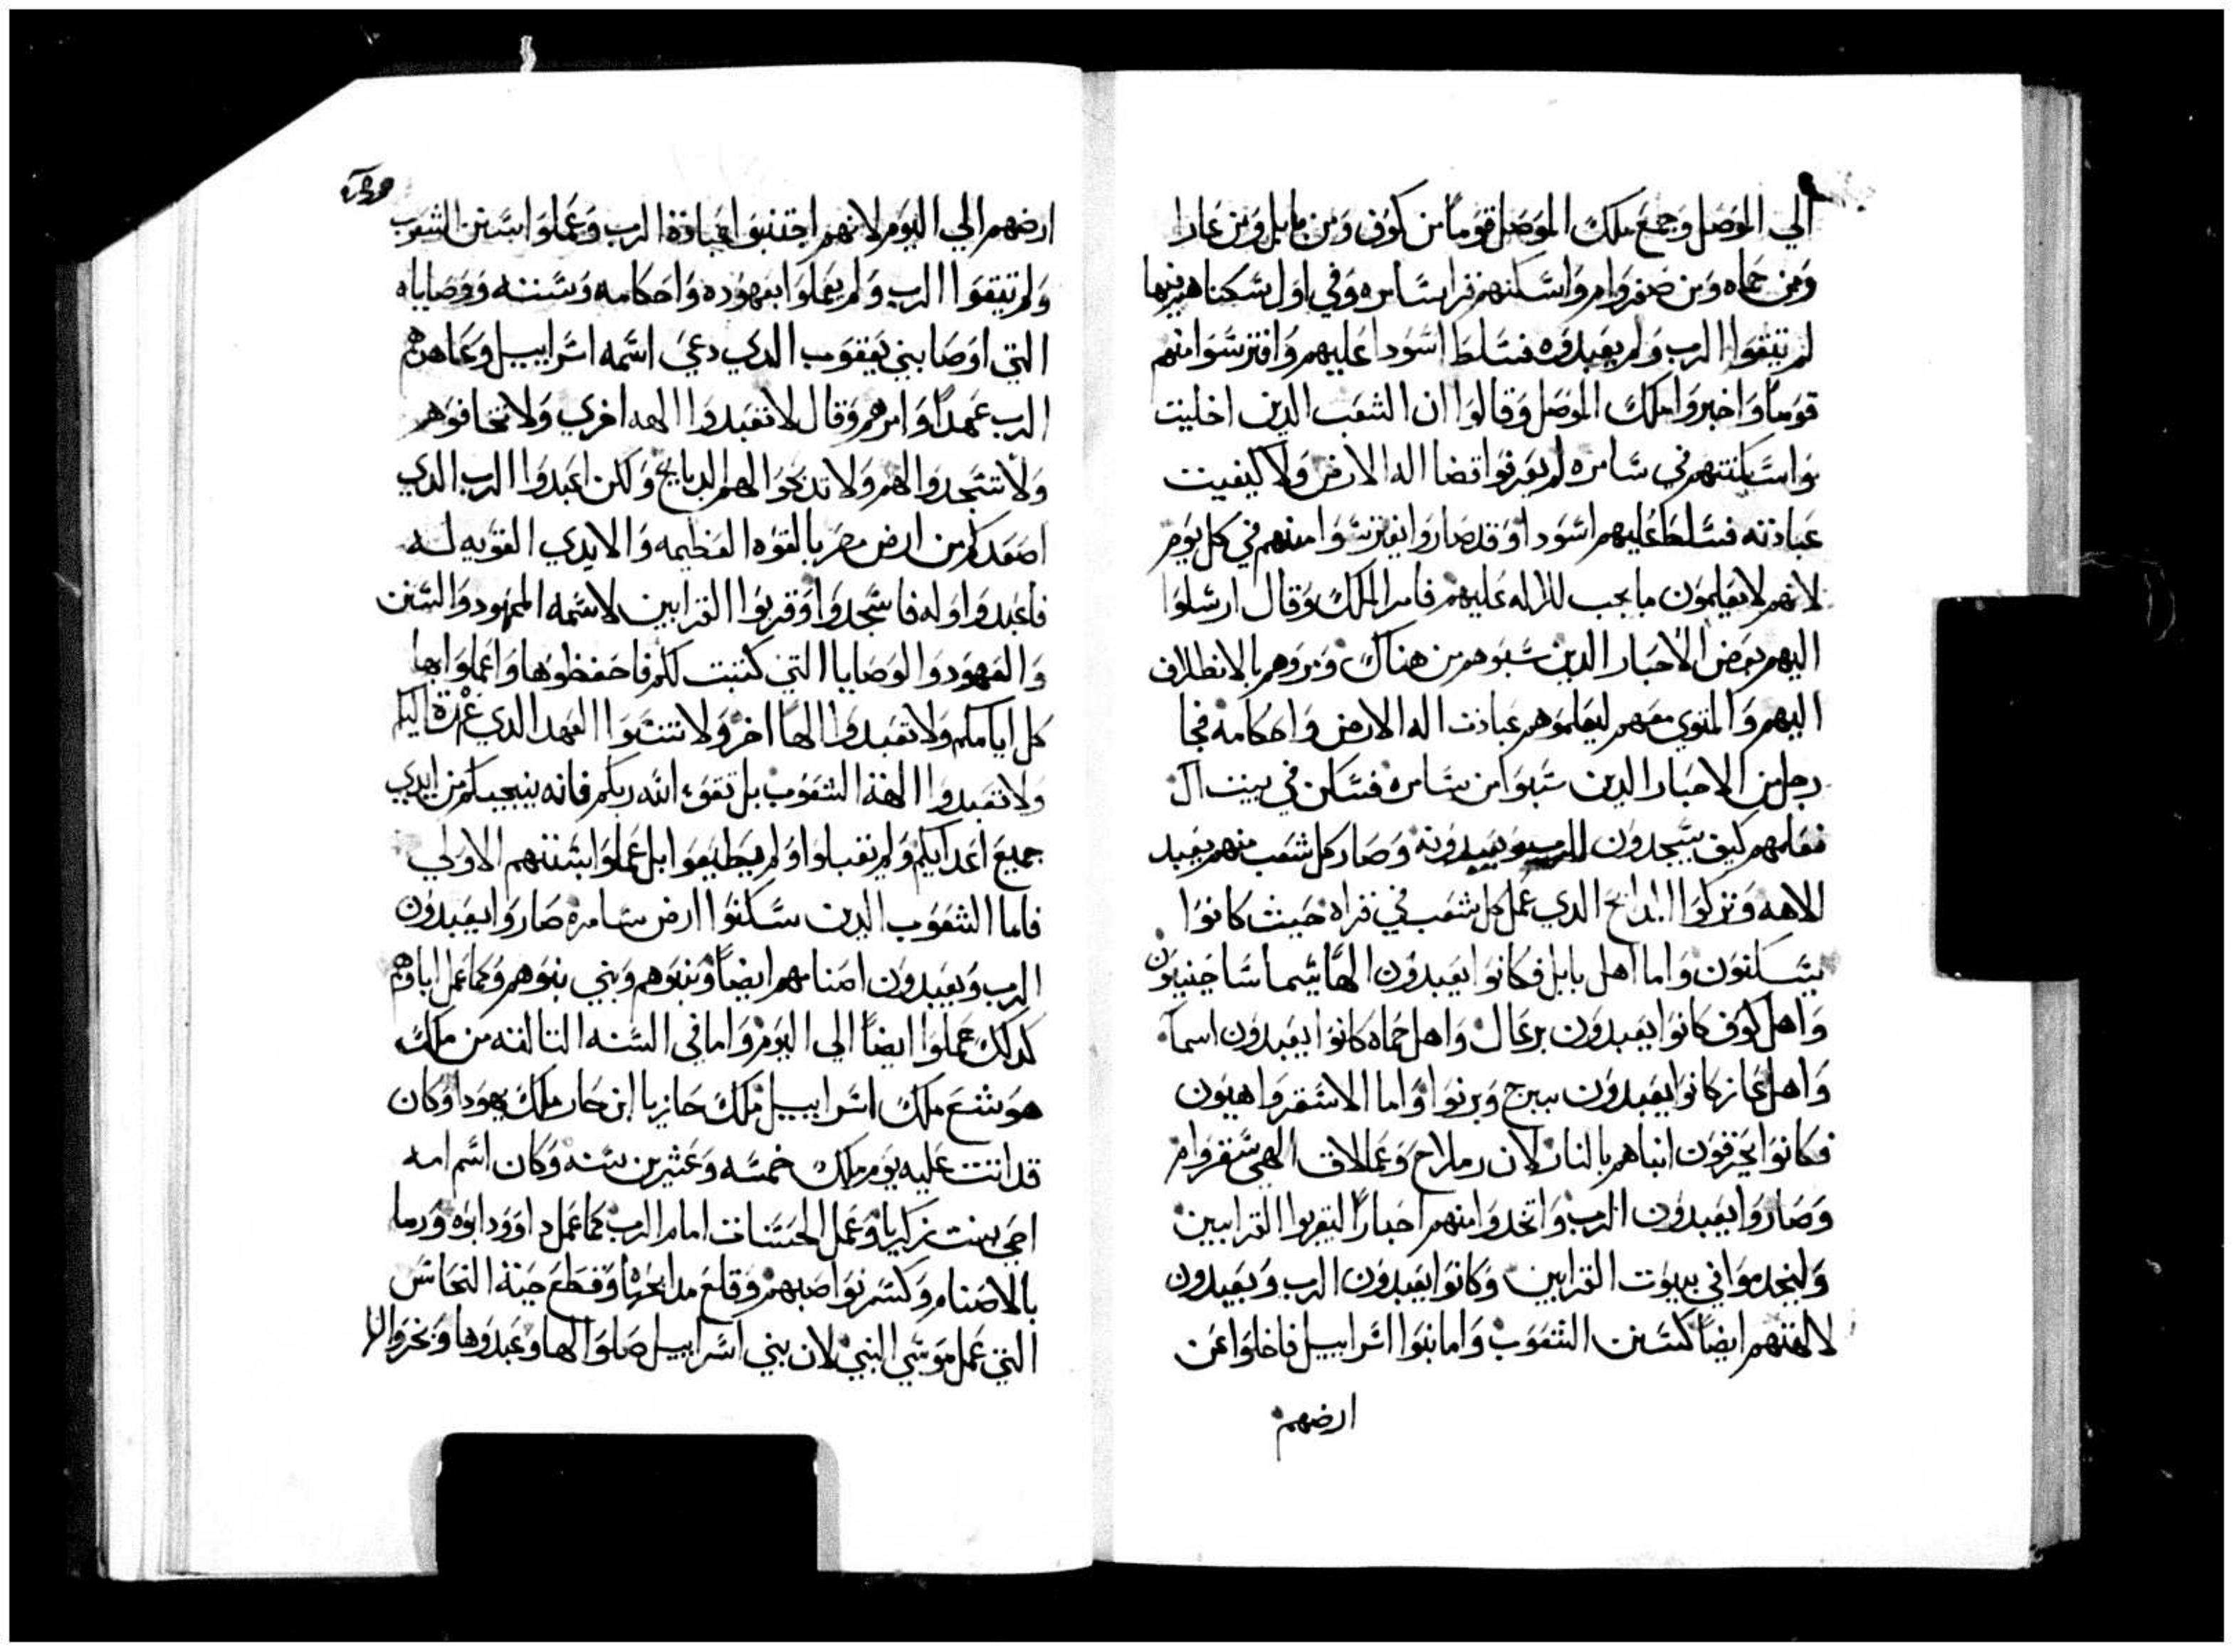 الي الموصل وجمع ملك الموصل قوماً من كوف ومن بابل ومن عازا
ومن حماه ومن صفروام واسكنهم قرا سامره وفي اول سكناهم فيها
لم يتقوا الرب ولم يعبدوه فسلط اسودا عليهم وافترسوا منهم
قوماً واخبروا ملك الموصل وقالوا ان الشعب الدين اخليت
واسكنتهم في سامره لم يعرفوا قضا اله الارض ولا كيفيت
عبادته فسلط عليهم اسودا وقد صاروا يفترسوا منهم في كل يوم
لانهم لا يعلمون ما يجب للاله عليهم فامر الملك وقال ارسلوا
اليهم بعض الاحبار الدين سبوهم من هناك ومروهم بالانطلاق
اليهم والمتوي معهم ليعلموهم عبادت اله الارض واحكامه فجا
رجل من الاحبار الدين سبوا من سامره فسكن في بيت ال
فعلمهم كيف يسجدون للرب ويعبدونه وصار كل شعب منهم يعبد
الاهه وتركوا المدابح الدي عمل كل شعب في قراه حيث كانوا
يسكنون واما اهل بابل فكانوا يعبدون الهاً يسما ساجنبيون
واهل كوف كانوا يعبدون برعال واهل حماه كانوا يعبدون اسما
واهل عاز كانوا يعبدون بيرح وبرنوا واما الاسفرواهيون
فكانوا يحرقون ابناهم بالنار لان رملاح وعملاق الهي سفروام
وصاروا يعبدون الرب واتخدوا منهم احباراً ليقربوا القرابين
وليخدموا في بيوت القرابين وكانوا يعبدون الرب ويعبدون
لالهتهم ايضاً كسنن الشعوب واما بنوا اسراييل فاخلوا عن
ارضهم
ارضهم الي اليوم لانهم اجتنبوا عبادة الرب وعملوا بسنن الشعوب
ولم يتقوا الرب ولم يعملوا بعهوده واحكامه وسننه ووصاياه
التي اوصا بني يعقوب الدي دعي اسمه اسراييل وعاهدهم
الرب عهداً وامرهم وقال لا تعبدوا الهه اخري ولا تخافوهم
ولا تسجدوا لهم ولا تدبحوا لهم الدبايح ولكن اعبدوا الرب الدي
اصعدكم من ارض مصر بالقوه العظيمه والايدي القويه له
فاعبدوا وله فاسجدوا وقربوا القرابين لاسمه الممهود والسنن
والعهود والوصايا التي كتبت لكم فاحفظوها واعملوا بها
كل ايامكم ولا تعبدوا الهاً اخر ولا تنسوا العهد الدي عهدة اليكم
ولا تعبدوا الهة الشعوب بل تقوا الله ربكم فانه ينجيكم من ايدي
جميع اعدايكم ولم تقبلوا ولم يطيعوا بل عملوا بسننهم الاولي
فاما الشعوب الدين سكنوا ارض سامره صاروا يعبدون
الرب ويعبدون اصنامهم ايضاً وبنوهم وبني بنوهم وكما عمل اباوهم
كدلك عملوا ايضاً الي اليوم واما في السنه التالته من ملك
هوشع ملك اسراييل ملك حازيا ابن حاز ملك يهودا وكان
قد اتت عليه يوم ملك خمسه وعشرين سنه وكان اسم امه
احي بنت زكريا وعمل الحسنات امام الرب كما عمل داوود ابوه ورما
بالاصنام وكسر نواصبهم وقلع مدابحها وقطع حية النحاس
التي عمل موسي النبي لان بني اسراييل ضلوا لها وعبدوها وبخروا لها